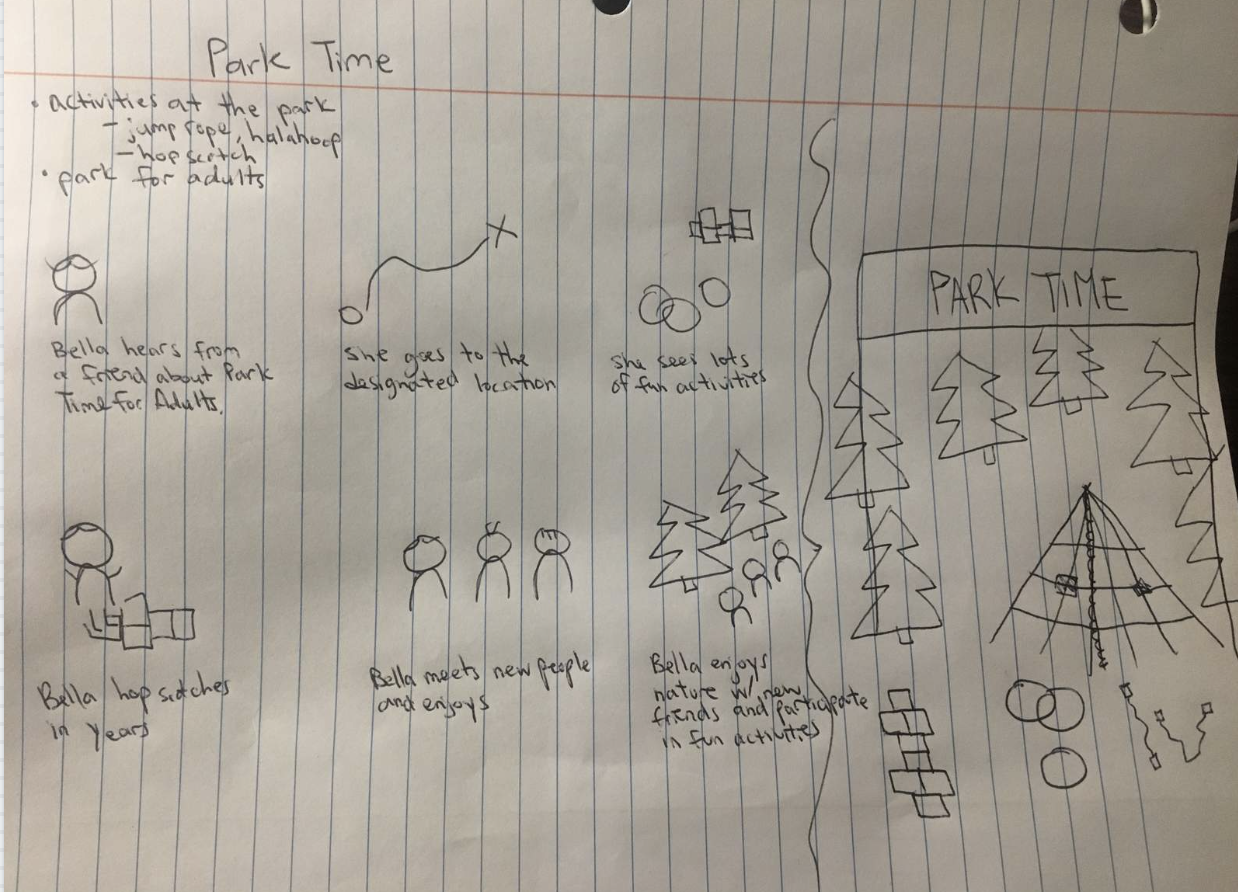 Park Time
• activities at the park
- jump rope, halahoop
- hop scotch
• park for adults
Bella hears from
a friend about Park
Time for Adults.
She goes to the
designated location
She sees lots
of fun activities
Bella hop scotches
in years
Bella meets new people
and enjoys
Bella enjoys
nature w/ new
friends and participate
in fun activities
PARK TIME